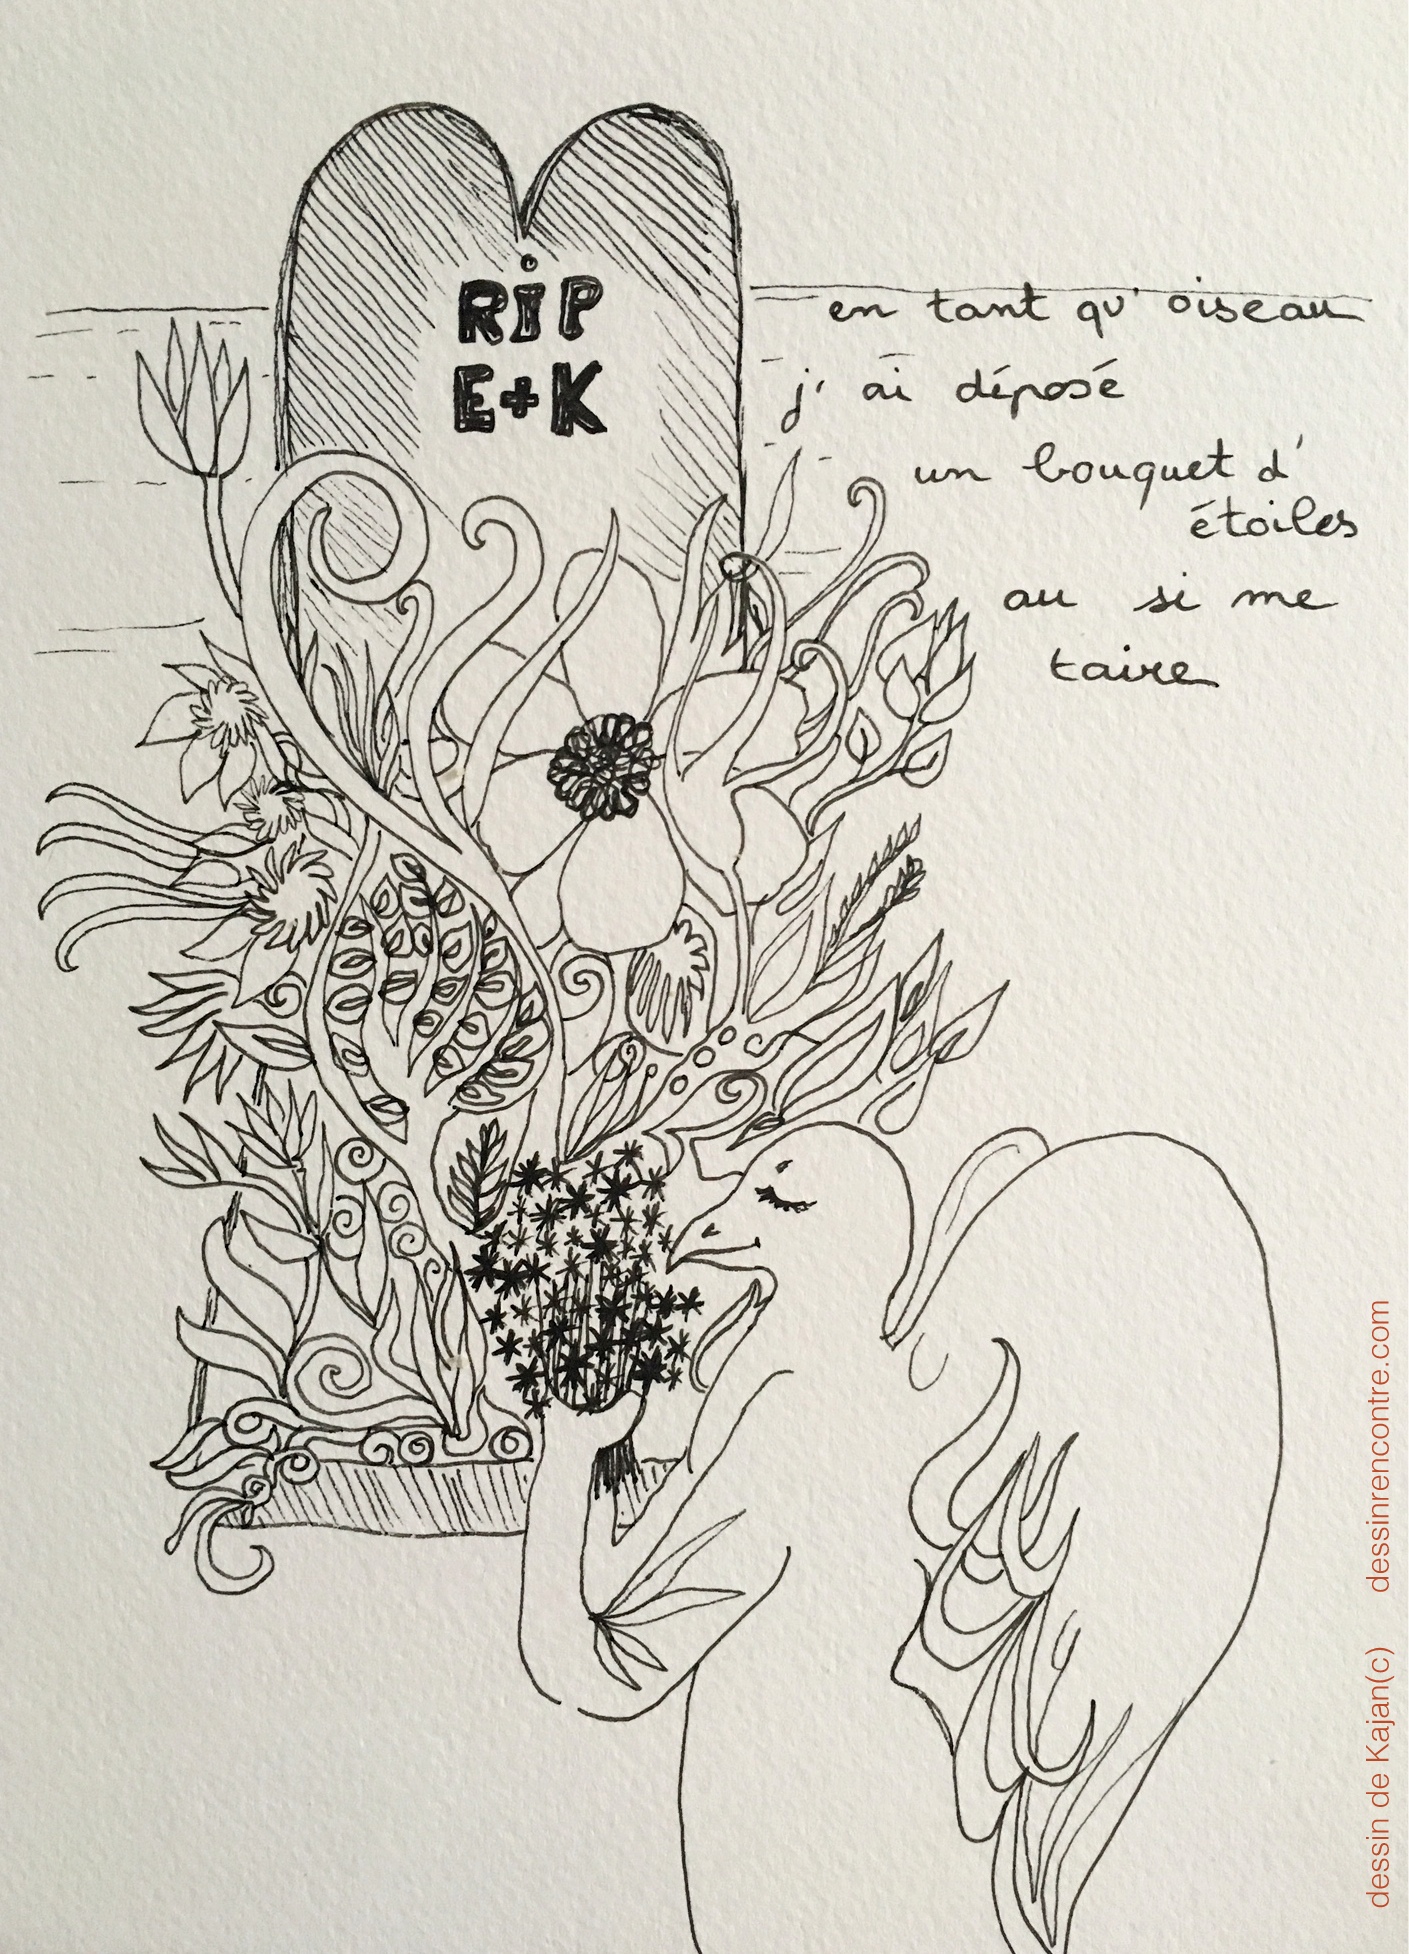 RIP
E+K
en tant qu'oiseau
j'ai déposé
un bouquet d'
étoiles
au si me
taire
dessin de Kajan(c) dessinrencontre.com